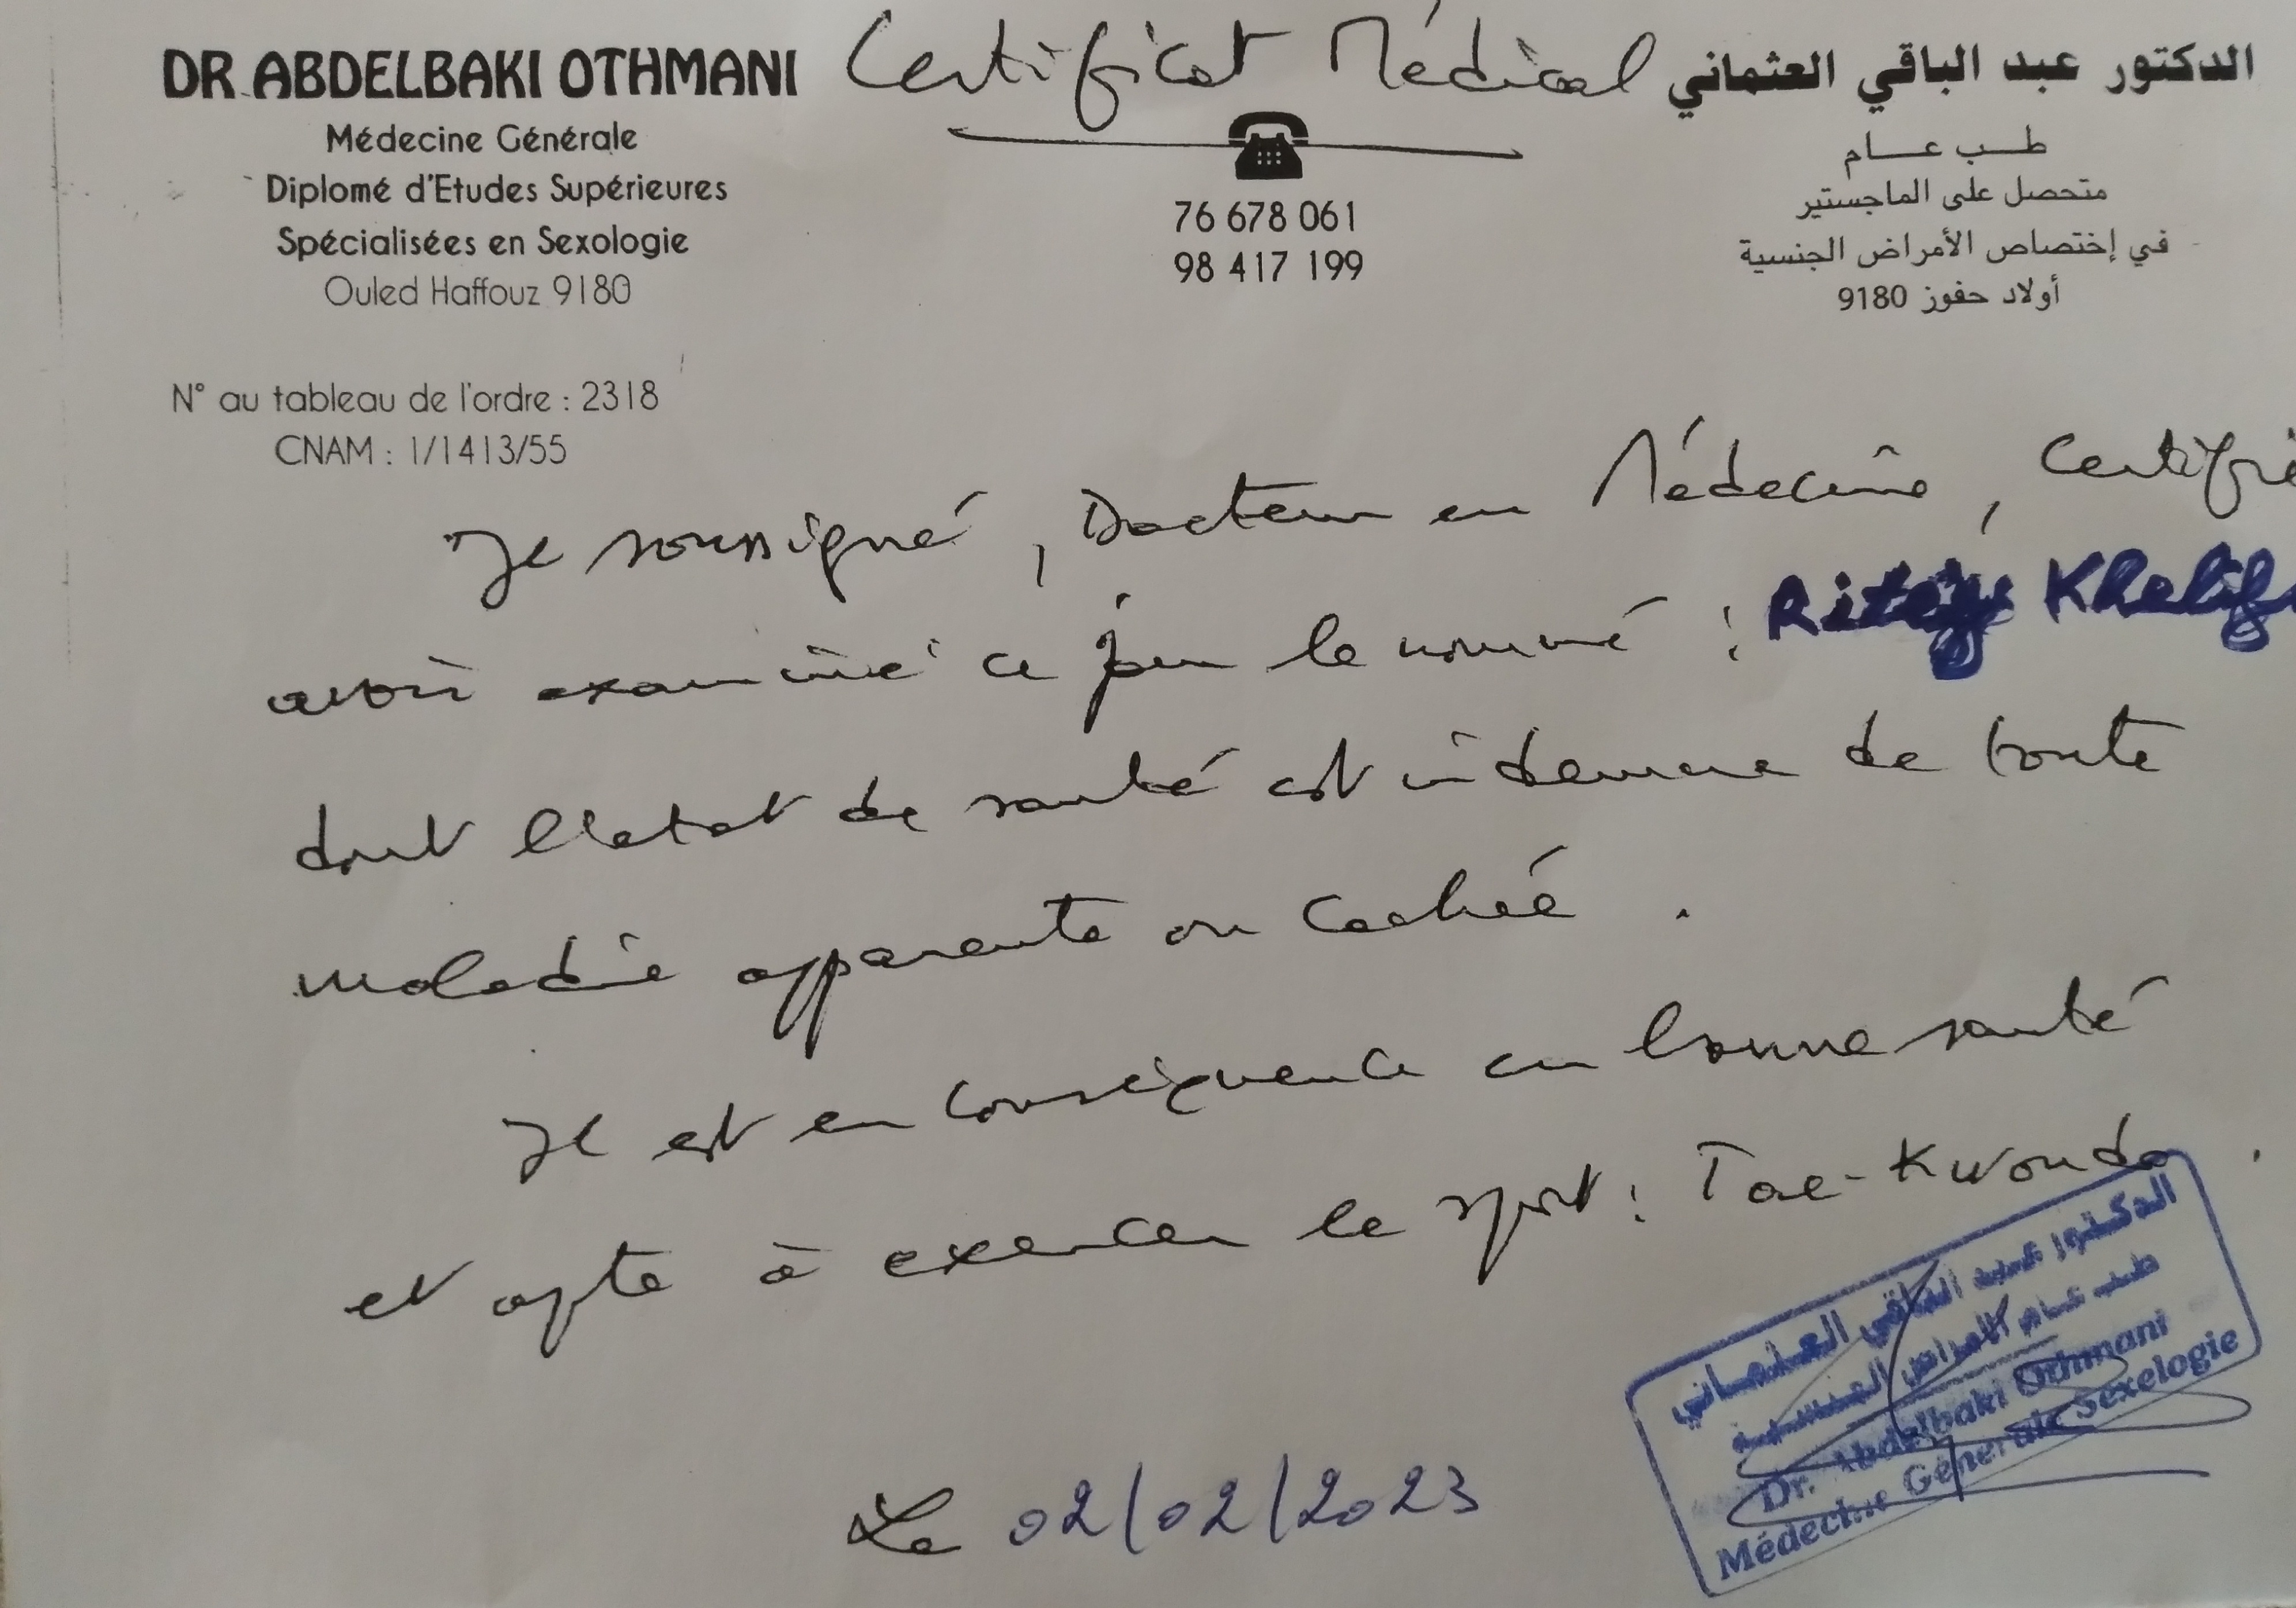 DR ABDELBAKI OTHMANI
Médecine Générale
Diplomé d'Etudes Supérieures
Spécialisées en Sexologie
Ouled Haffouz 9180
N° au tableau de l'ordre : 2318
CNAM : 1/1413/55
Certificat Médical
76 678 061
98 417 199
الدكتور عبد الباقي العثماني
طب عام
متحصل على الماجستير
في إختصاص الأمراض الجنسية
أولاد حفوز 9180
Je soussigné, Docteur en Médecine, Certifie
avoir examiné ce jour le nommé : Khelif
dont l'etat de santé est indemne de toute
maladie apparente ou cachée .
Il est en conséquence en bonne santé
et apte à exercer le sport : Tae-Kwondo .
Le 02/02/2023
الدكتور عبد الباقي العثماني
طب عام الأمراض الجنسية
Dr. Abdelbaki Othmani
Médecine Générale Sexelogie